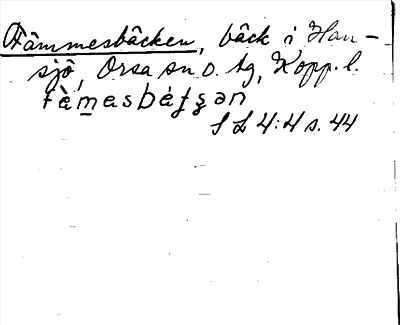 Fämmesbäcken, bäck i Han-
sjö, Orsa sn o. tg, Kopp. l.
fàm̲asbát̠ʂən
S L 4:4 s. 44